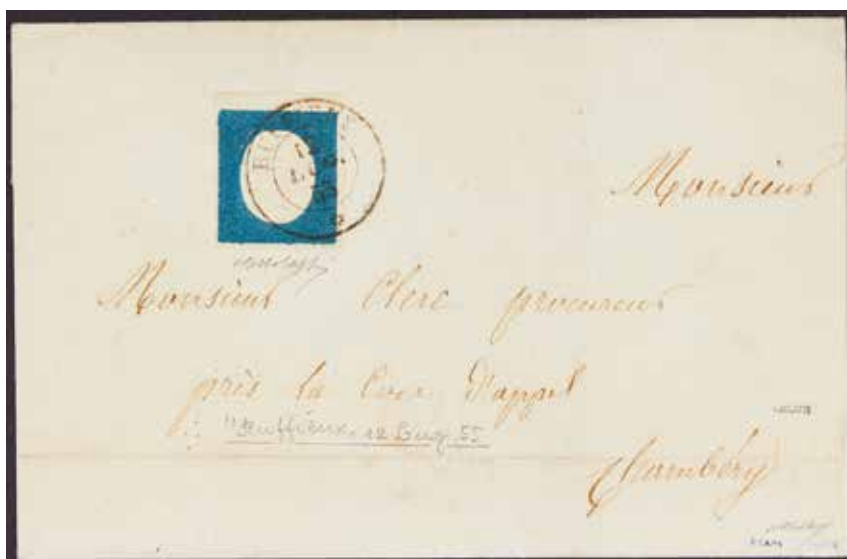 Monsieur
Monsieur Clerc procureur
près la Cour d'appel
"Ruffieux 12 Lug 55
Chambéry